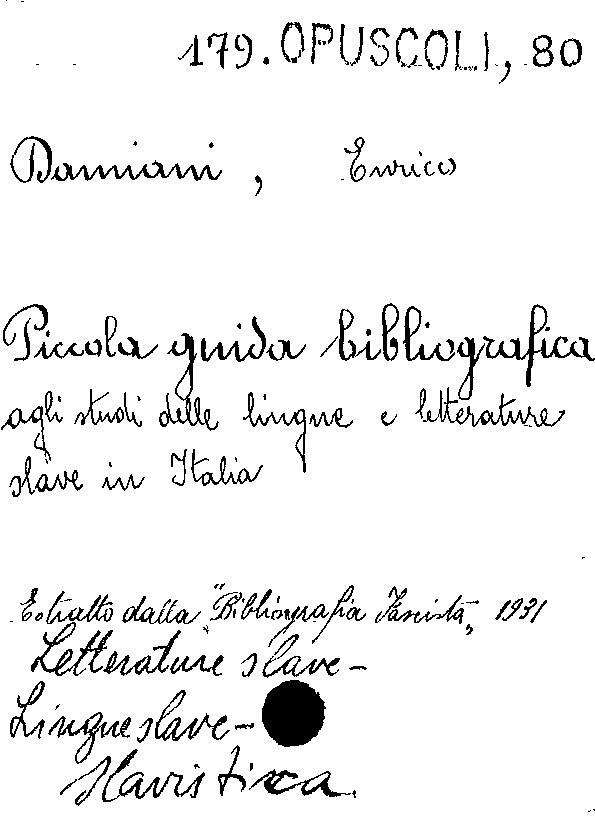 179. OPUSCOLI, 80
Damiani, Enrico
Piccola guida bibliografica
agli studi delle lingue e letterature
slave in Italia
Estratto dalla "Bibliografia Fascista", 1931
Letterature slave -
Lingue slave -
Slavistica.